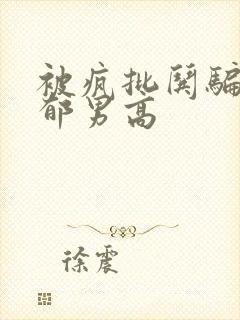 被疯批阴骗
郁男高
徐震